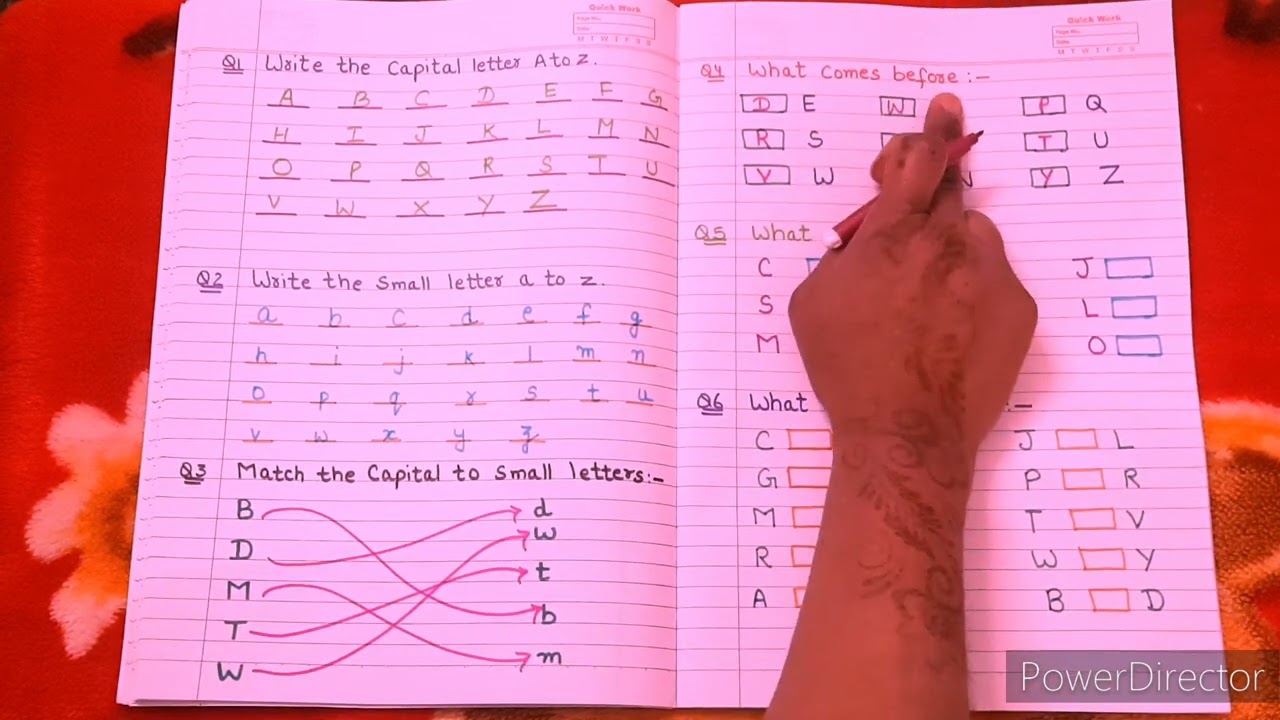 Quick Work
Page No.
Date
M T W T F S S
Q1 Write the Capital letter A to Z.
A B C D E F G
H I J K L M N
O P Q R S T U
V W X Y Z
Q2 Write the Small letter a to z.
a b c d e f g
h i j k l m n
o p q r s t u
v w x y z
Q3 Match the Capital to Small letters:-
B d
D w
M t
T b
W m
Quick Work
Page No.
Date
M T W T F S S
Q4 What Comes before :-
D E W P Q
R S T U
V W Y Z
Q5 What
C J
S L
M O
Q6 What :-
C J L
G P R
M T V
R W Y
A B D
PowerDirector